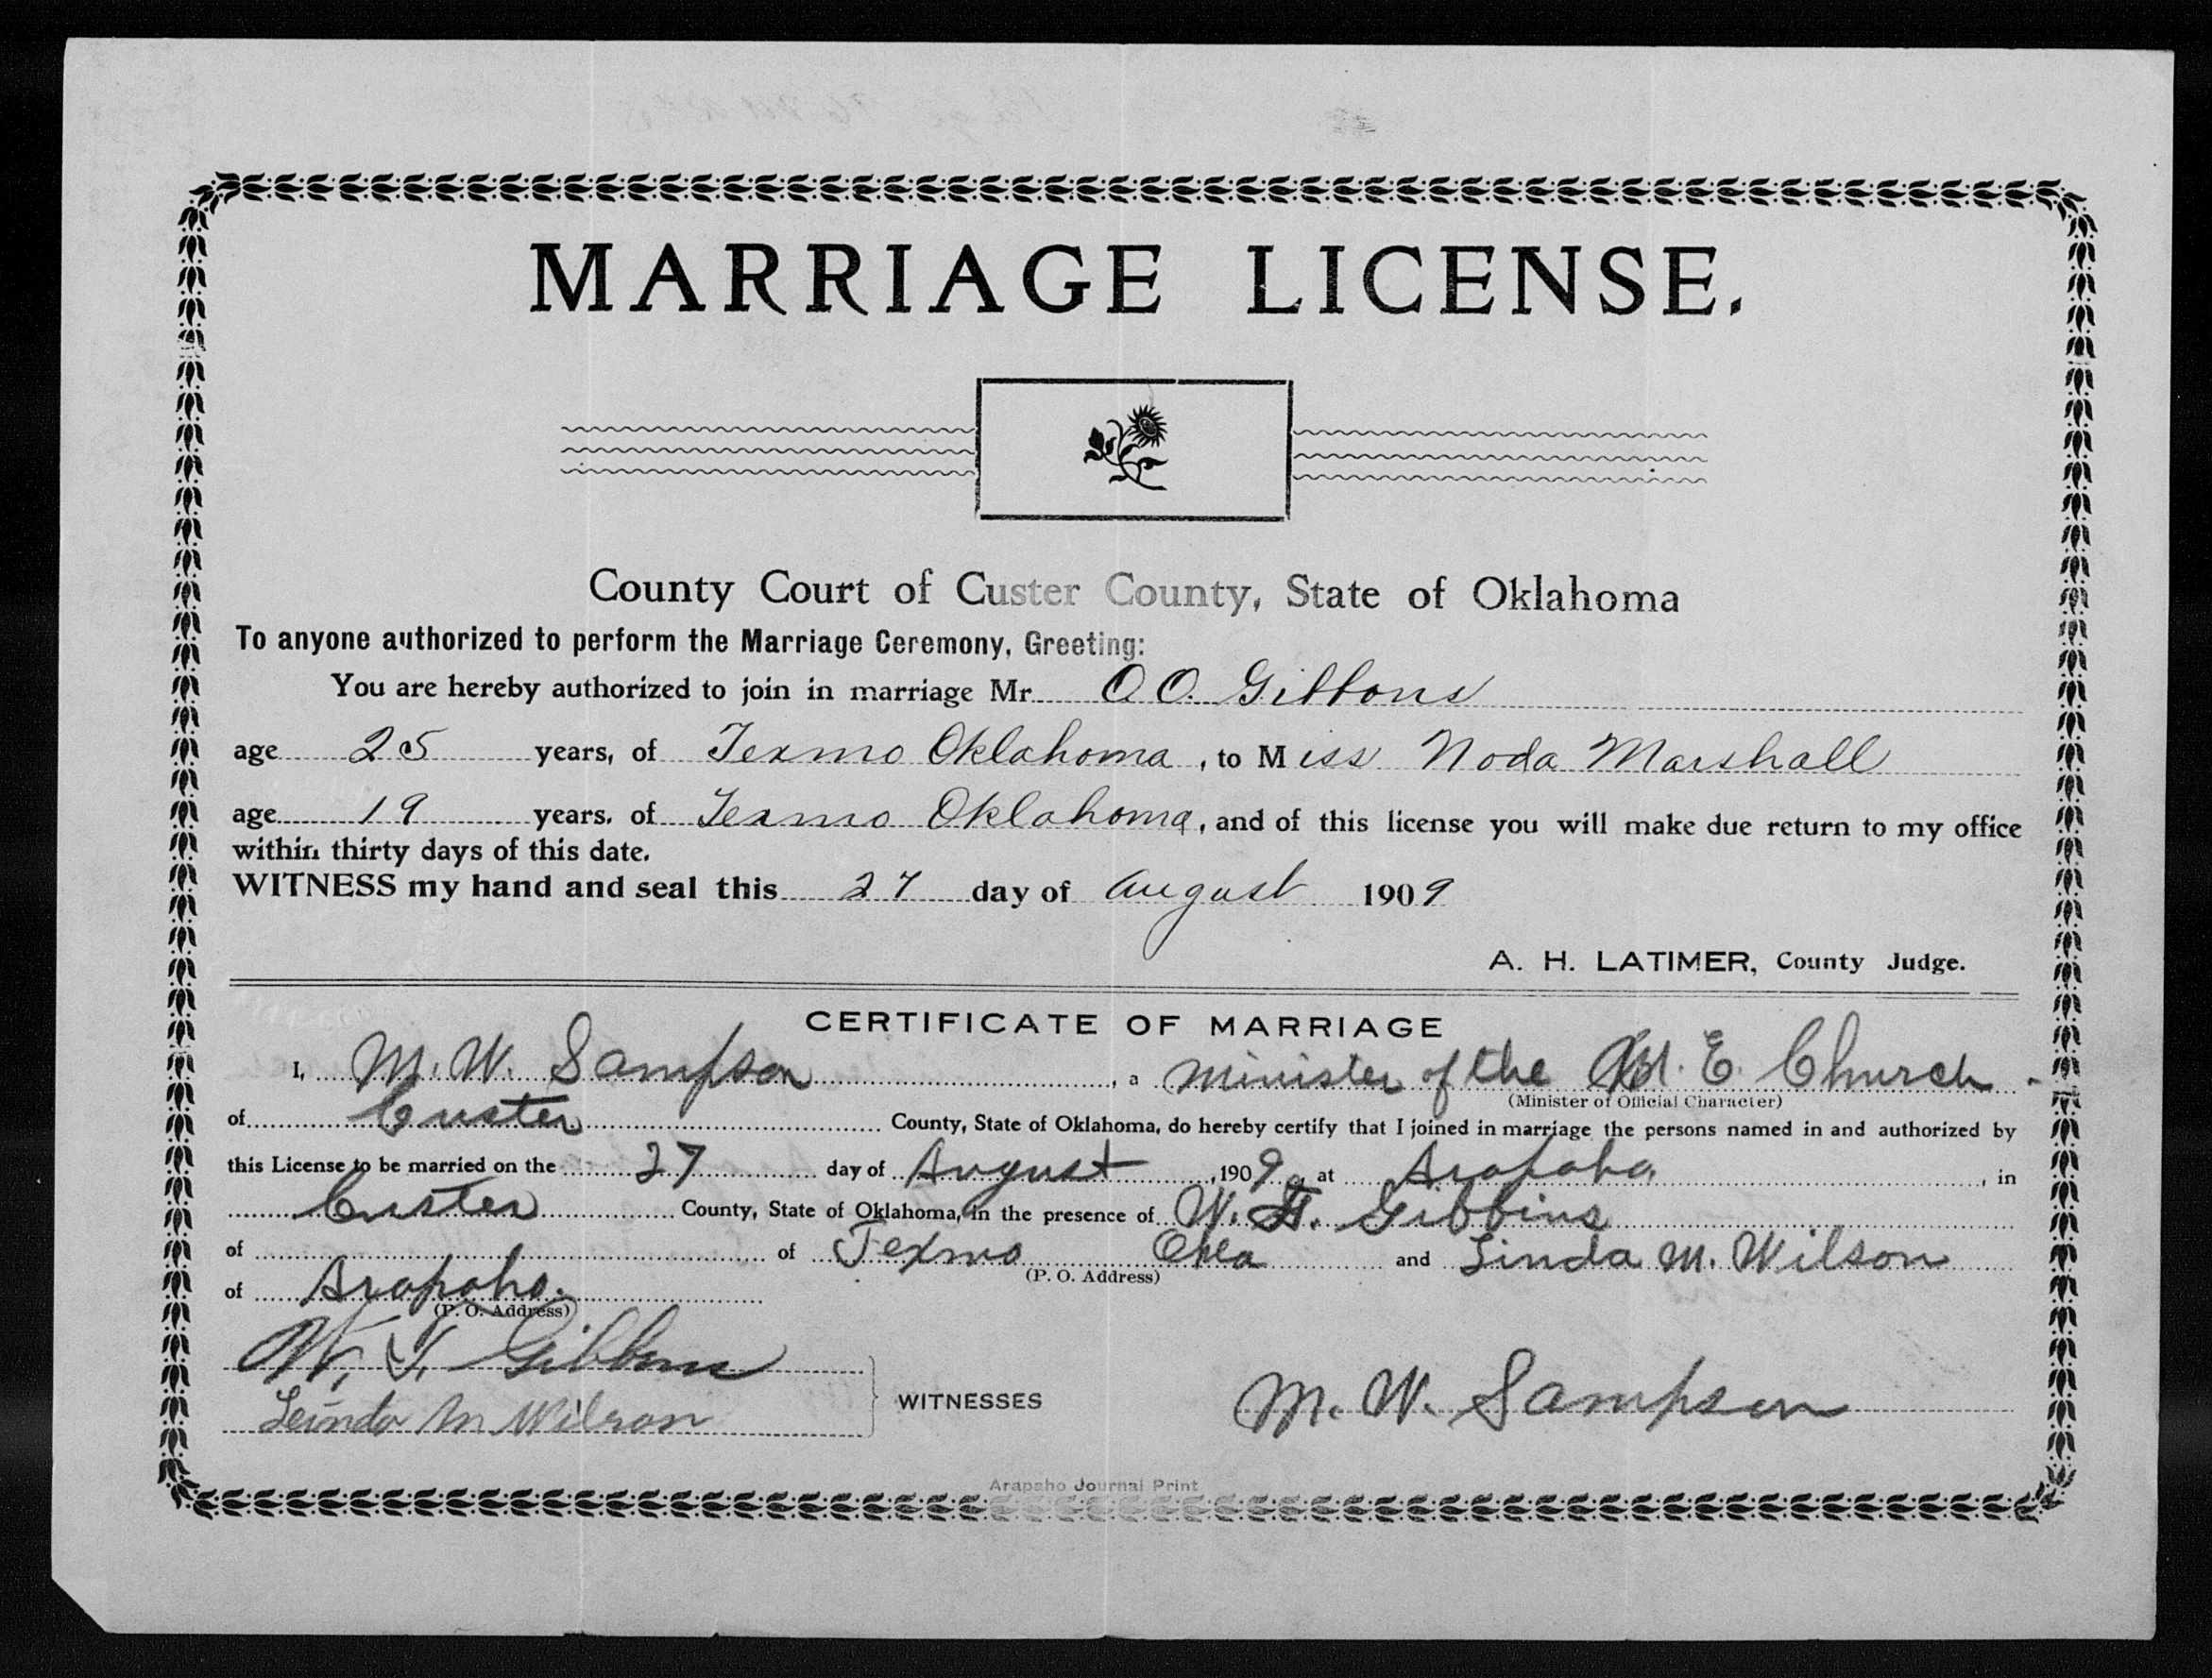 MARRIAGE LICENSE.
County Court of Custer County, State of Oklahoma
To anyone authorized to perform the Marriage Ceremony, Greeting:
You are hereby authorized to join in marriage Mr. O O. Gibbons
age 25 years, of Texmo Oklahoma, to Miss Noda Marshall
age 19 years. of Texmo Oklahoma, and of this license you will make due return to my office
within thirty days of this date.
WITNESS my hand and seal this 27 day of August 1909
A. H. LATIMER, County Judge.
CERTIFICATE OF MARRIAGE
I, M. W. Sampson, a minister of the M. E. Church
(Minister of Official Character)
of Custer County, State of Oklahoma, do hereby certify that I joined in marriage the persons named in and authorized by
this License to be married on the 27 day of August, 1909 at Arapaho, in
Custer County, State of Oklahoma, in the presence of W. Gibbins
of of Texmo Okla and Linda M. Wilson
(P. O. Address)
of Arapaho.
(P. O. Address)
W. Gibbons
Linda M Wilson
WITNESSES
M. W. Sampson
Arapaho Journal Print